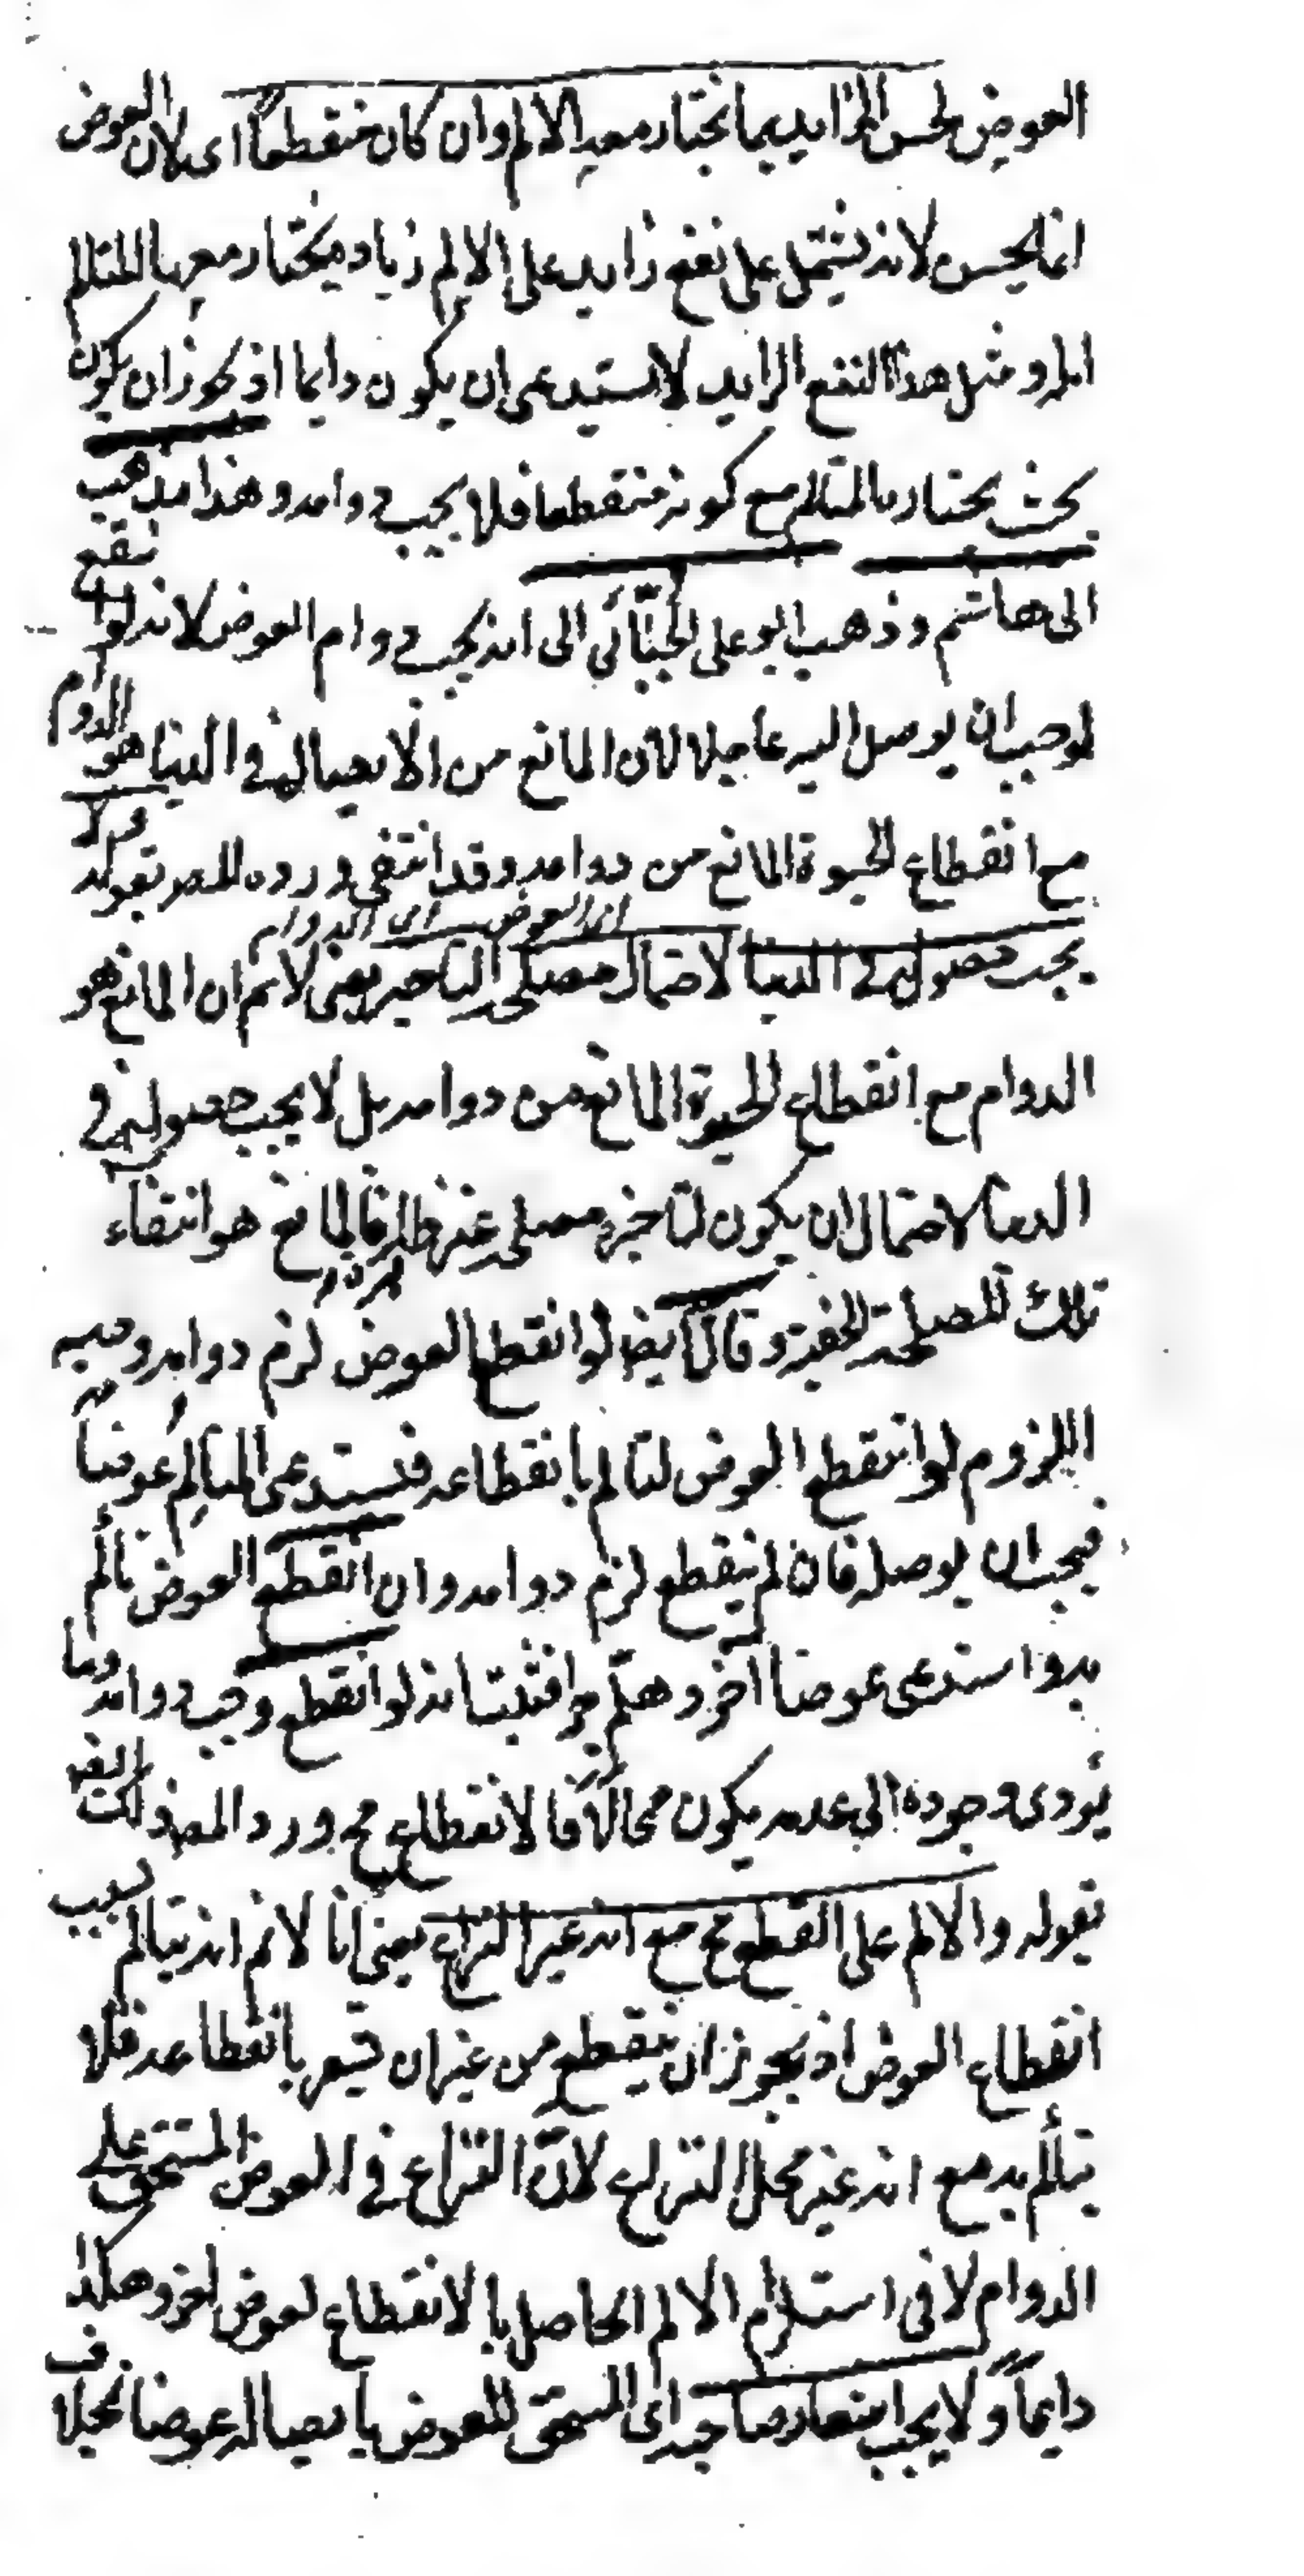 العوض لحسن الزايد بما يختار معه الالم وان كان منقطعاً اى لان العوض
انما يحسن لانه يشتمل على نفع زايد على الالم زيادة يختار معها المتالم
الم و مثل هذا النفع الزايد لا يستدعى ان يكون دايما اذ يجوز ان يكون
بحيث يختاره المتالم مع كونه منقطعا فلا يجب دوامه و هذا مذهب
ابى هاشم و ذهب ابو على الجبّائى الى انه يجب دوام العوض لانه لو انقطع
لوجب ان يوصل اليه عاجلا لان المانع من الايصال فى الدنيا هو الدوام
مع انقطاع الحيوة المانع من دوامه وقد انتفى و رده المص بقوله و لا
يجب حصوله فى الدنيا لاحتمال مصلحة التاخير يعنى لا نم ان المانع هو
اى العوض اى الدوام
الدوام مع انقطاع الحيوة المانع من دوامه بل لا يجب حصوله فى
الدنيا لاحتمال ان يكون لتاخيره مصلحة غير ظاهرة فالمانع هو انتفاء
تلك المصلحة الخفية و قال ايضا لو انقطع العوض لزم دوامه وجه
اللزوم لو انقطع العوض لتالم بانقطاعه فيستدعى المتالم عوضاً
فيجب ان يوصله فان لم ينقطع لزم دوامه و ان انقطع العوض تألم
به و استدعى عوضا آخر و هلم جرا فثبت انه لو انقطع وجب دوامه و ما
يؤدى وجوده الى عدمه يكون محالاً فالانقطاع مح و رد المص ذلك
بقوله و الالم على القطع مح مع انه غير النزاع يعنى انا لا نم انه يتالم بسبب
انقطاع العوض اذ يجوز ان ينقطع من غير ان يشعر بانقطاعه فلا
يتألم به مع انه غير محل النزاع لانّ النزاع فى العوض المستحق على
الدوام لا فى استلزام الالم الحاصل بالانقطاع لعوض اخر و هكذا
دايماً و لا يجب اشعار صاحبه اى المستحق للعوض بايصاله عوضا بخلاف